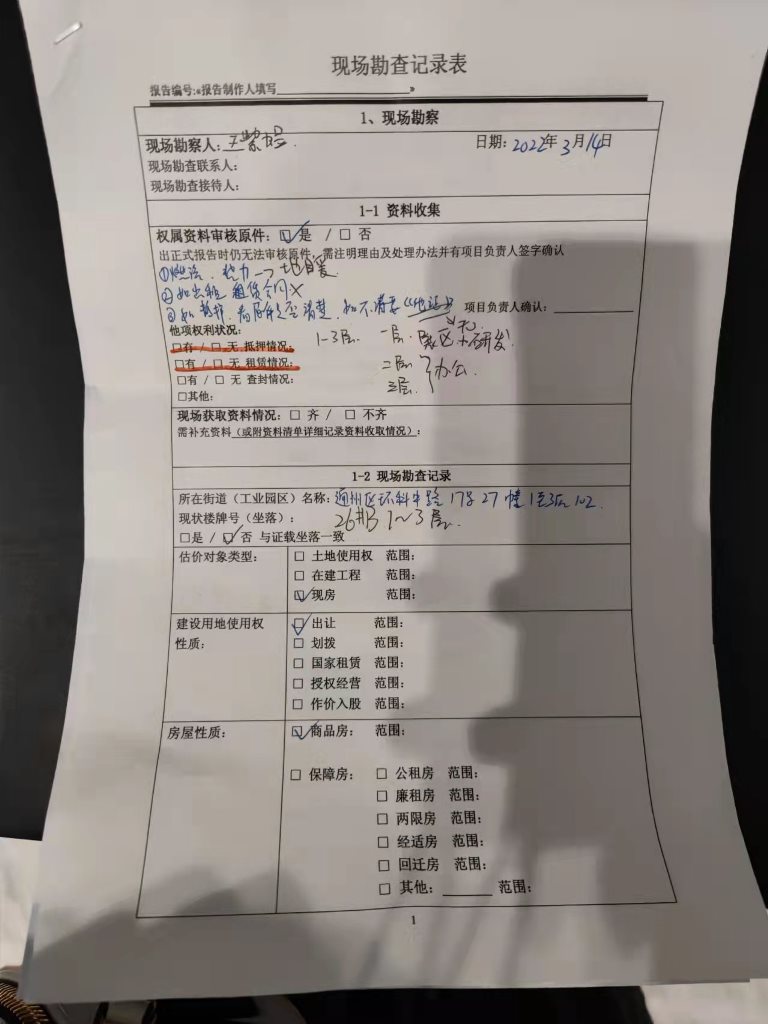 现场勘查记录表
报告编号:«报告制作人填写 »
1、现场勘察
现场勘察人:
日期: 2022年 3月 14日
现场勘查联系人:
现场勘查接待人:
1-1 资料收集
权属资料审核原件: ☑ 是 / □ 否
出正式报告时仍无法审核原件,需注明理由及处理办法并有项目负责人签字确认
① 燃法、热力 → 地暖
② 如出租 租赁合同 ×
③ 如 清楚, 如不清楚 项目负责人确认:
他项权利状况:
□有 / □ 无 抵押情况: 1-3层. 一层. 展区 研发.
□有 / □ 无 租赁情况: 二层 办公
□有 / □ 无 查封情况: 三层
□其他:
现场获取资料情况: □ 齐 / □ 不齐
需补充资料(或附资料清单详细记录资料收取情况):
1-2 现场勘查记录
所在街道(工业园区)名称: 通州区环科中路 17号 27 幢 1至3层 102
现状楼牌号(坐落): 26#B 1~3层.
□是 / ☑ 否 与证载坐落一致
估价对象类型: □ 土地使用权 范围:
□ 在建工程 范围:
☑ 现房 范围:
建设用地使用权 ☑ 出让 范围:
性质: □ 划拨 范围:
□ 国家租赁 范围:
□ 授权经营 范围:
□ 作价入股 范围:
房屋性质: ☑ 商品房: 范围:
□ 保障房: □ 公租房 范围:
□ 廉租房 范围:
□ 两限房 范围:
□ 经适房 范围:
□ 回迁房 范围:
□ 其他: 范围:
1